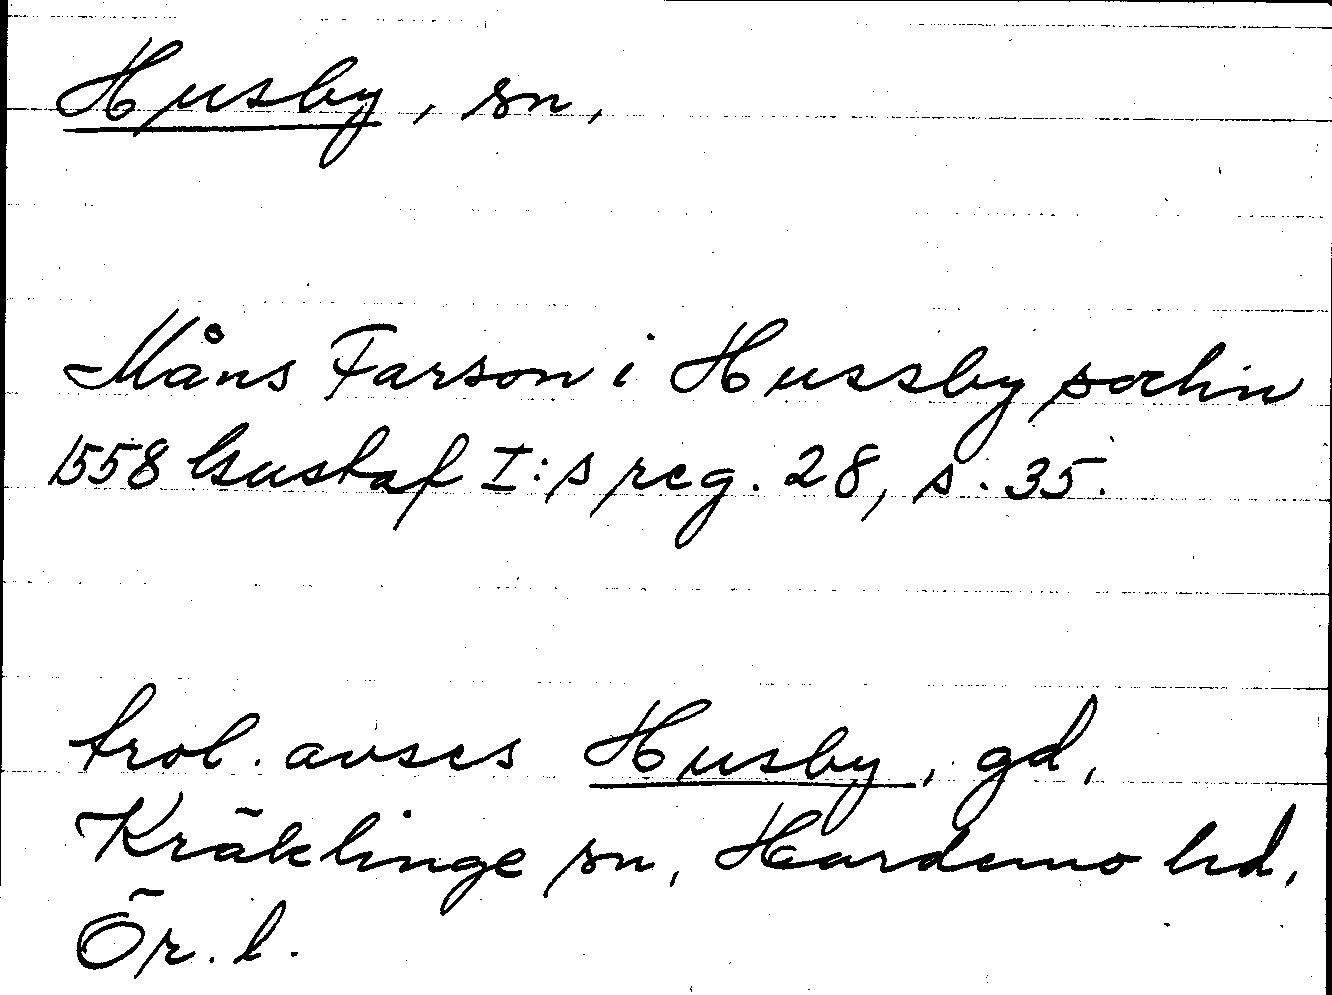 Husby, sn,
Måns Farson i Hussby sochn
1558 Gustaf I:s reg. 28, s. 35.
trol. avses Husby, gd,
Kräklinge sn, Hardemo hd,
Ör. l.